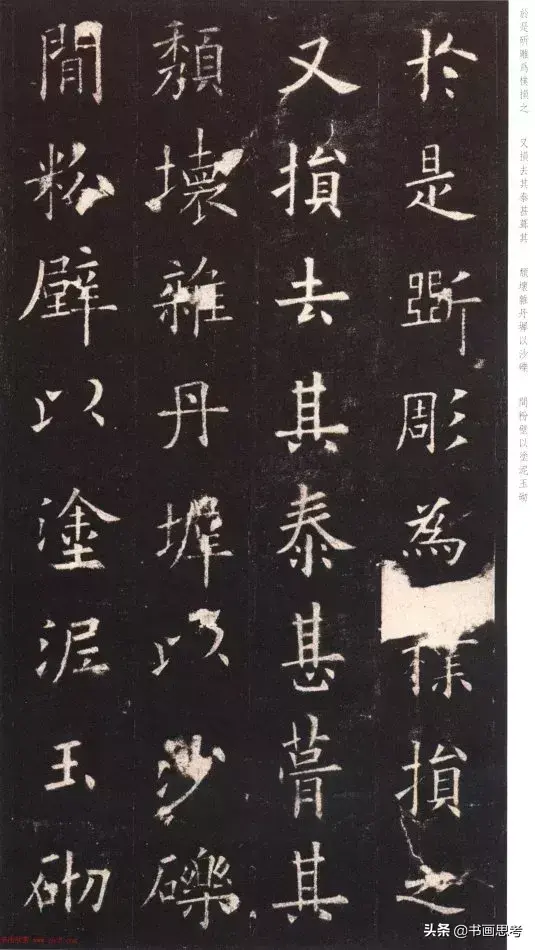 於是斲彫為樸損之
又損去其泰甚葺其
頹壞雜丹墀以沙礫
閒粉壁以塗泥玉砌
於是斫雕為樸損之 又損去其泰甚葺其 頹壞雜丹墀以沙礫 間粉壁以塗泥玉砌
头条 @书画思考